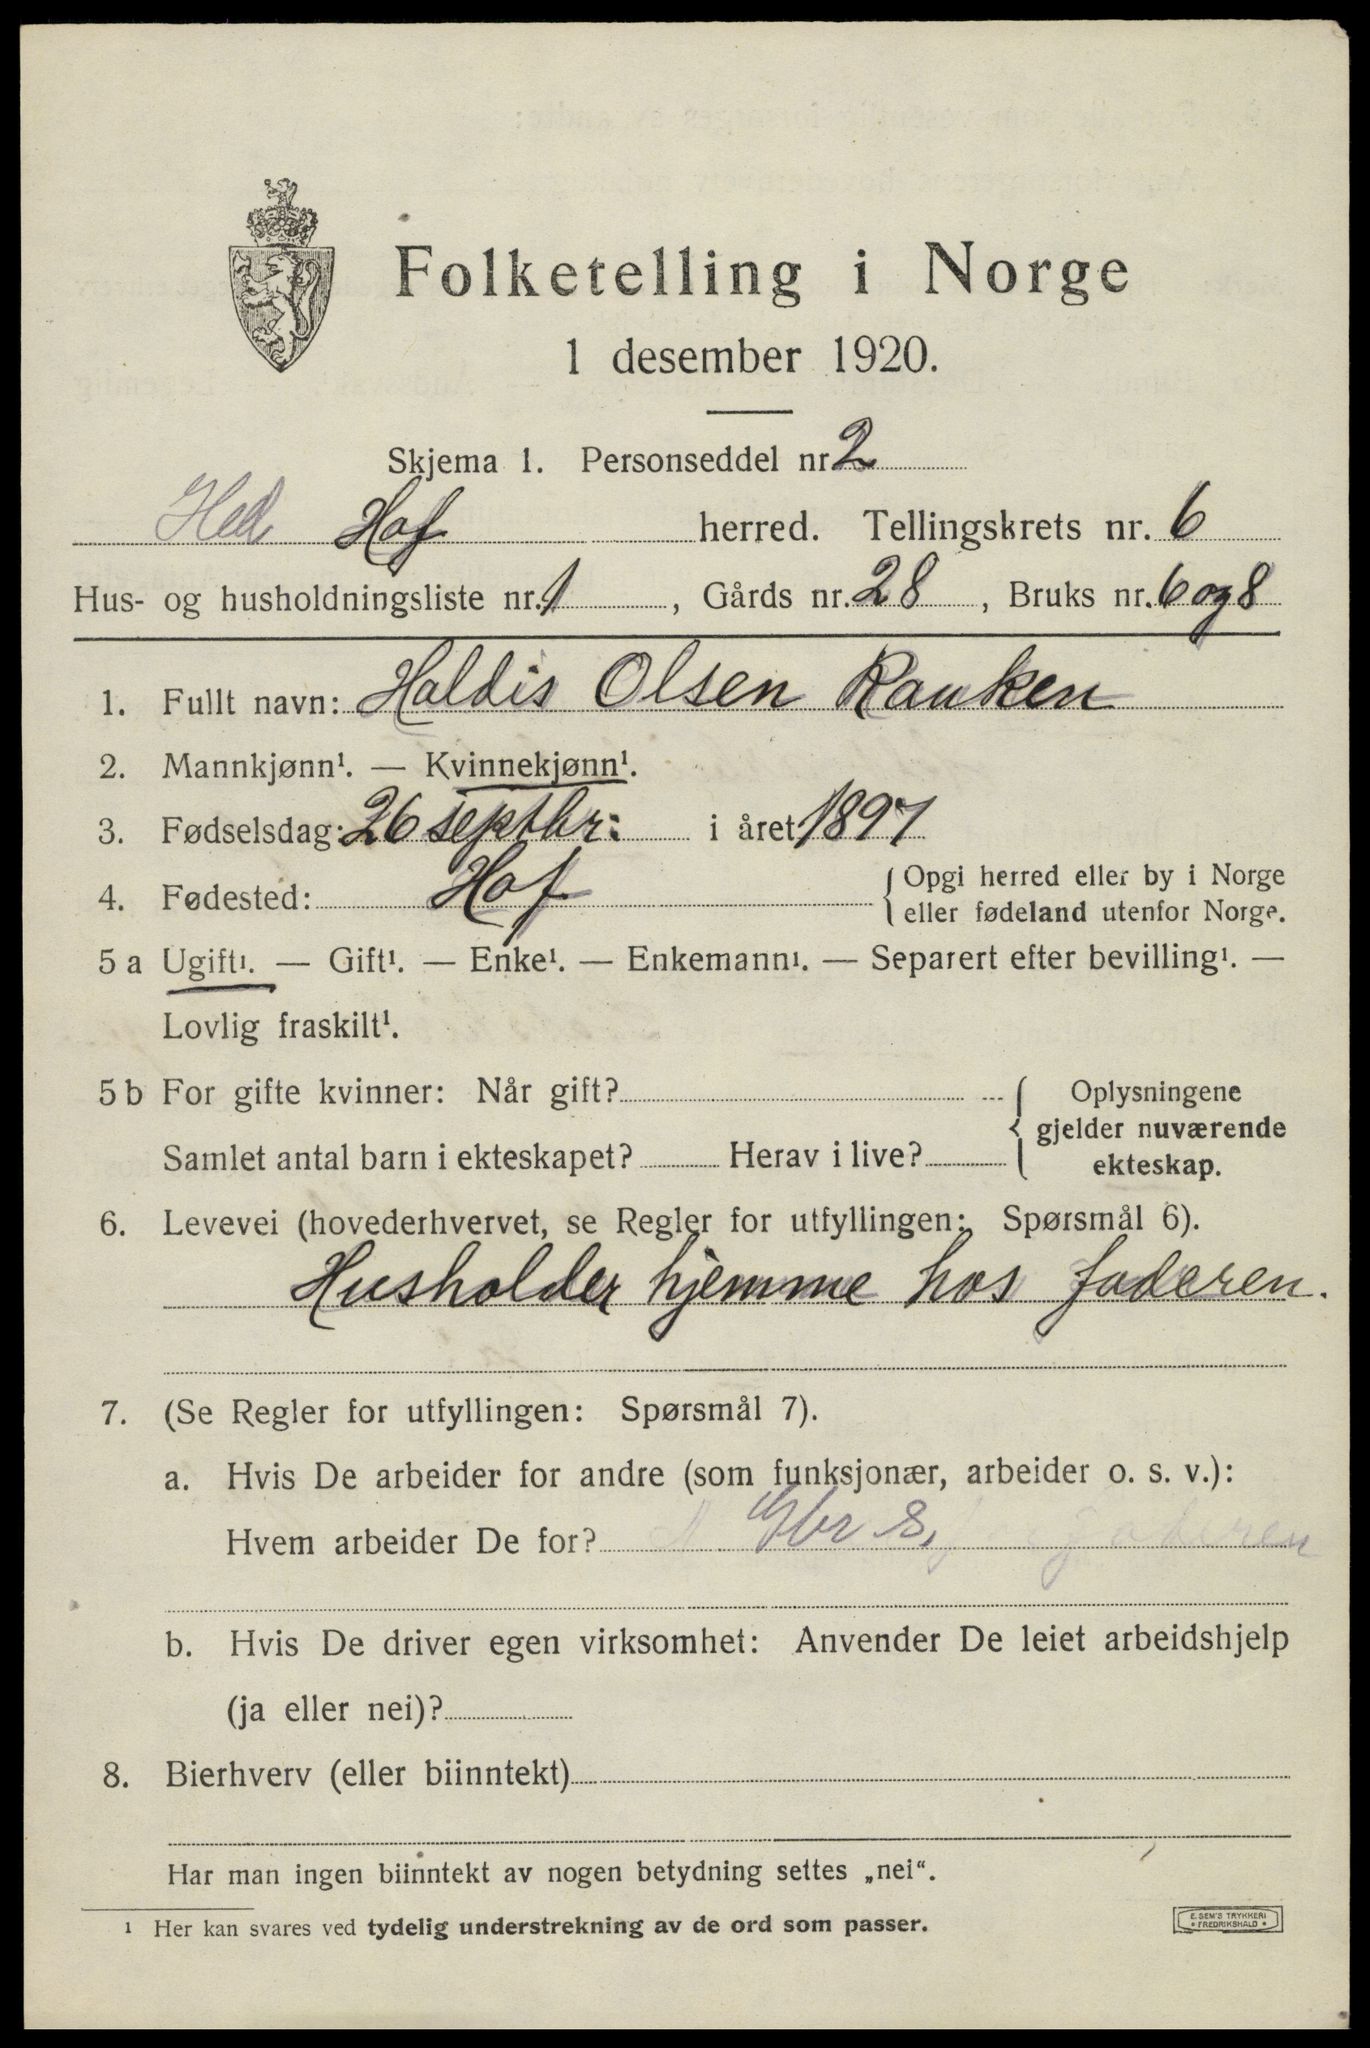 Folketelling i Norge
1 desember 1920.
Skjema 1. Personseddel nr 2
Hed Hof herred. Tellingskrets nr. 6
Hus- og husholdningsliste nr. 1, Gårds nr. 28, Bruks nr. 6 og 8
1. Fullt navn: Haldis Olsen Rauken
2. Mannkjønn¹. — Kvinnekjønn¹.
3. Fødselsdag: 26 septbr: i året 1897
4. Fødested: Hof {Opgi herred eller by i Norge
eller fødeland utenfor Norge.
5 a Ugift¹. — Gift¹. — Enke¹. — Enkemann¹. — Separert efter bevilling¹. —
Lovlig fraskilt¹.
5 b For gifte kvinner: Når gift? { Oplysningene
gjelder nuværende
Samlet antal barn i ekteskapet? Herav i live? ekteskap.
6. Levevei (hovederhvervet, se Regler for utfyllingen: Spørsmål 6).
Husholder hjemme hos faderen.
7. (Se Regler for utfyllingen: Spørsmål 7).
a. Hvis De arbeider for andre (som funksjonær, arbeider o. s. v.):
Hvem arbeider De for? Gbr s, faderen
b. Hvis De driver egen virksomhet: Anvender De leiet arbeidshjelp
(ja eller nei)?
8. Bierhverv (eller biinntekt)
Har man ingen biinntekt av nogen betydning settes „nei“.
¹ Her kan svares ved tydelig understrekning av de ord som passer.
E. SEM'S TRYKKERI
• FREDRIKSHALD •